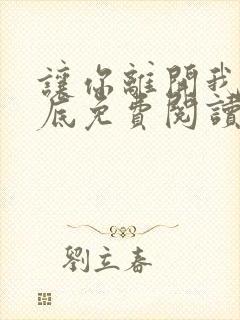 讓你離開我
底免費閱讀
劉立春